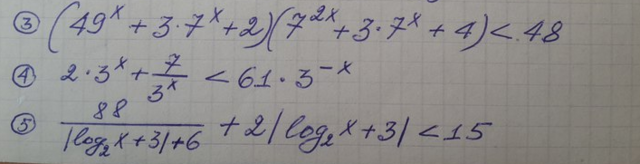 ③ (49^x + 3·7^x + 2)(7^{2x} + 3·7^x + 4) < 48
④ 2·3^x + 7/3^x < 61·3^{-x}
⑤ 88/(|log₂x+3|+6) + 2|log₂x+3| < 15